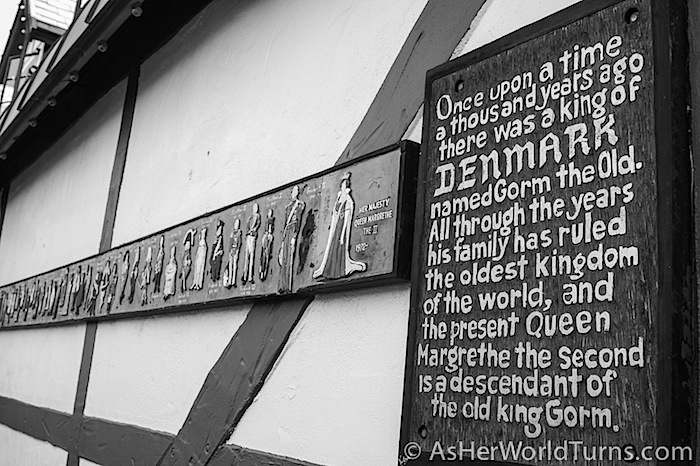 Once upon a time
a thousand years ago
there was a king of
DENMARK
named Gorm the Old.
All through the years
his family has ruled
the oldest kingdom
of the world, and
the present Queen
Margrethe the Second
is a descendant of
the old king Gorm.
HER MAJESTY
QUEEN MARGRETHE
THE II
1970-
© AsHerWorldTurns.com